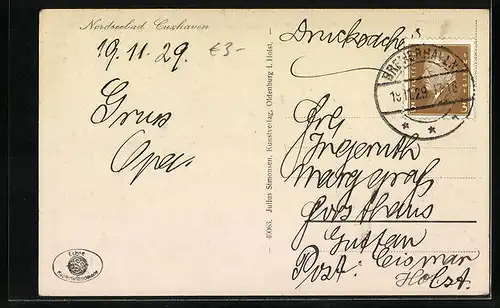 Nordseebad Cuxhaven
19.11.29. €3-
Gruss
Opa.
Echte
40083. Julius Simonsen, Kunstverlag, Oldenburg i. Holst.
Drucksache
BREMERHAVEN
19.11.29
3
Frl
Ingeruth
Marggraf
Forsthaus
Gustau
Post: Cismar
Holst.